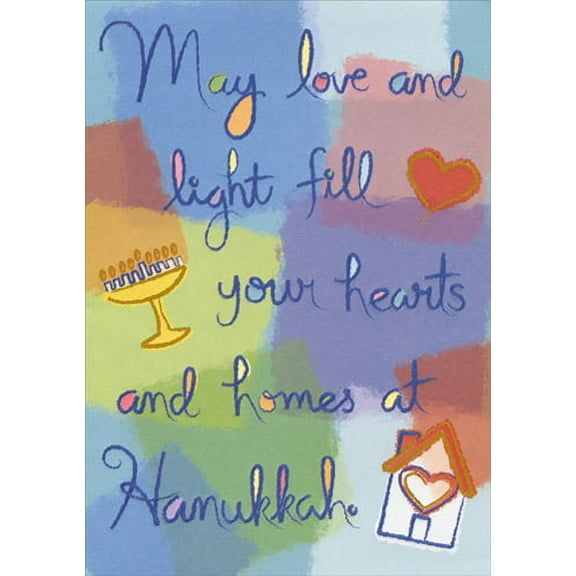 May love and
light fill
your hearts
and homes at
Hanukkah.